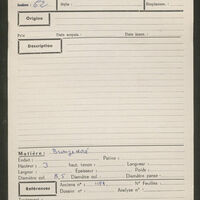 Indice: 62 Style: Emplacem.:
Origine
Prix Date acquis.: Date inven.:
Description
Matière: Bronze doré
Enduit: Patine:
Hauteur: 3 haut. tenon: Longueur:
Largeur: Epaisseur: Poids:
Diamètre ext. 8,5 Diamètre col: Diamètre panse:
Références Anciens nos: N° Feuilles:
Dossier n° Analyse n°:
Traitement: